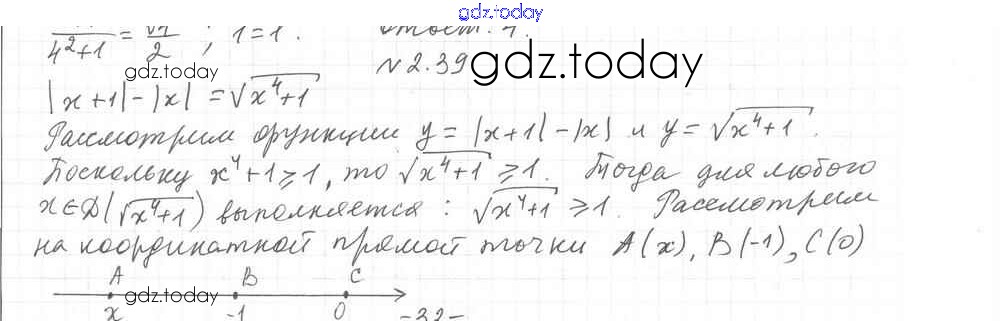 gdz.today
4²+1 = √1/2 ; 1=1. Ответ: 1.
gdz.today
№2.39
gdz.today
|x+1|-|x| = √x⁴+1
Рассмотрим функции y = |x+1|-|x| и y = √x⁴+1.
Поскольку x⁴+1≥1, то √x⁴+1 ≥1. Тогда для любого
x∈D(√x⁴+1) выполняется: √x⁴+1 ≥1. Рассмотрим
на координатной прямой точки A(x), B(-1), C(0)
A B C
gdz.today
x -1 0 -32-